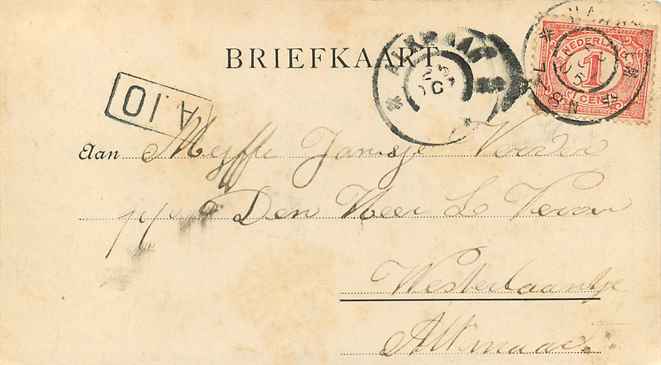 BRIEFKAART
ALKMAAR
NEDERLAND
1
CENT
A.10
Aan Mejffr Jansje
p/a Den Heer
Westerlaantje
Alkmaar